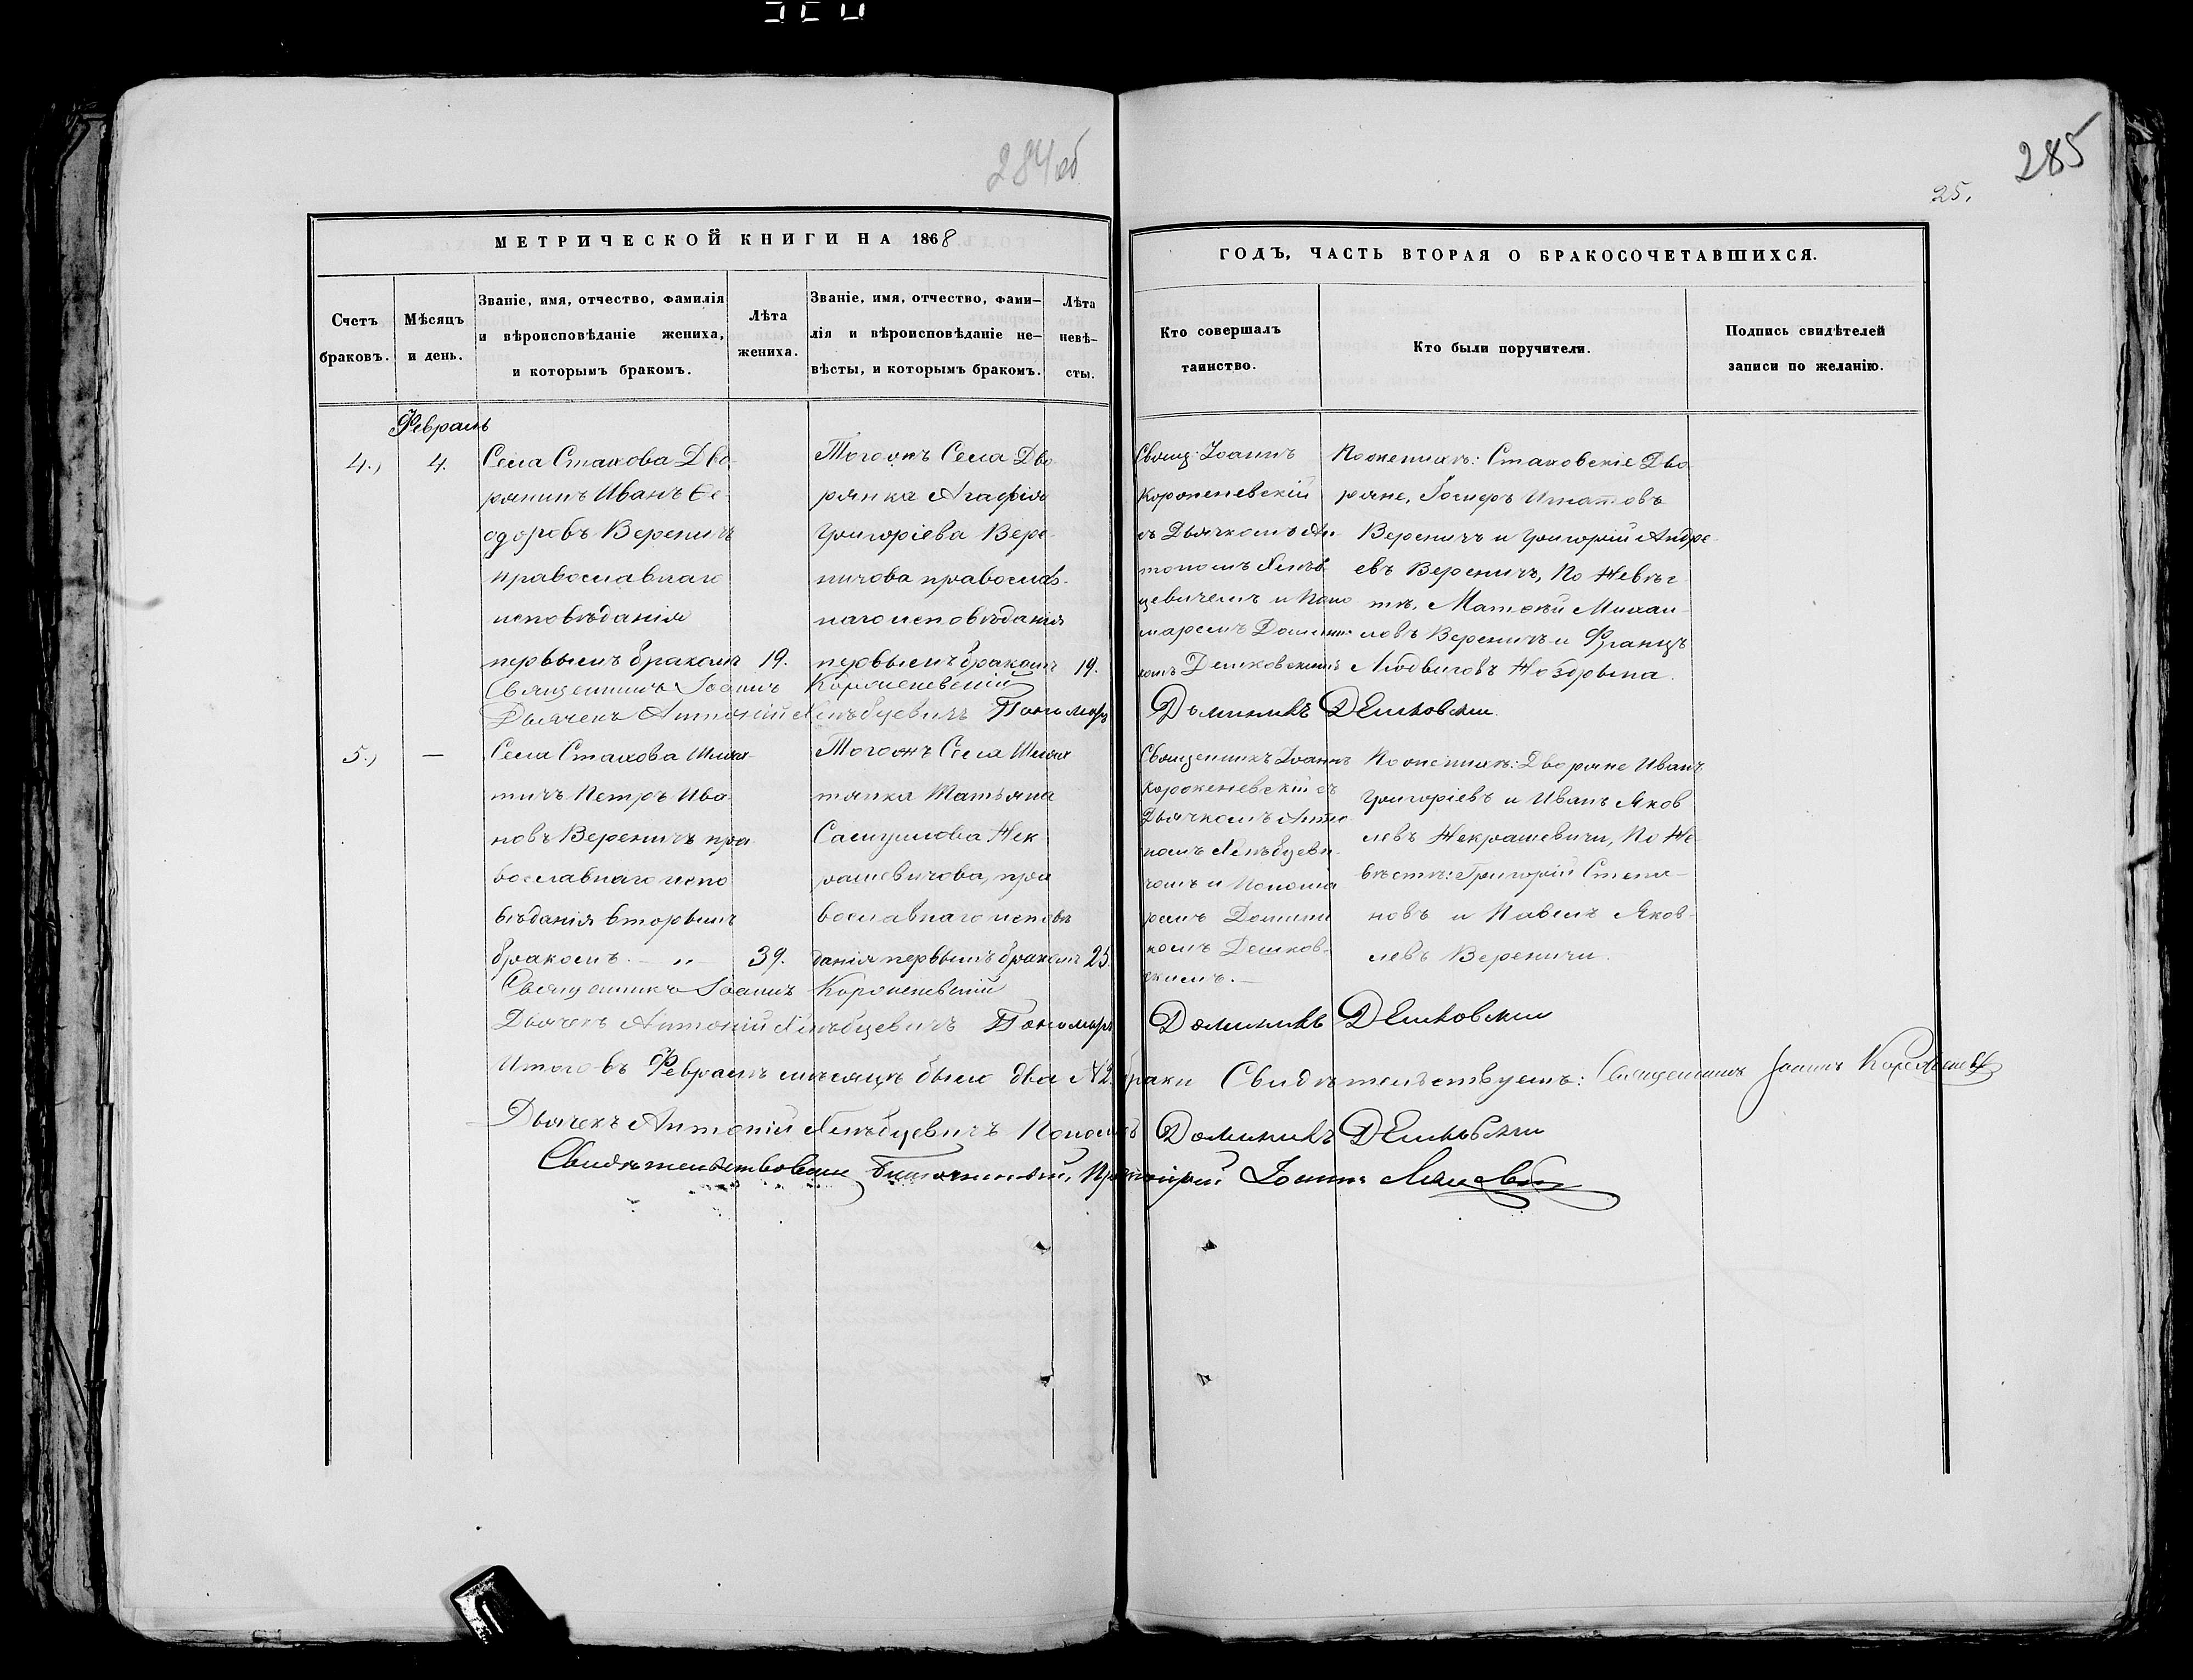 284 об
285
25.
МЕТРИЧЕСКОЙ КНИГИ НА 1868
ГОДЪ, ЧАСТЬ ВТОРАЯ О БРАКОСОЧЕТАВШИХСЯ.
Счетъ
браковъ.
Мѣсяцъ
и день.
Званіе, имя, отчество, фамилія
и вѣроисповѣданіе жениха,
и которымъ бракомъ.
Лѣта
жениха.
Званіе, имя, отчество, фами–
лія и вѣроисповѣданіе не–
вѣсты, и которымъ бракомъ.
Лѣта
невѣ–
сты.
Кто совершалъ
таинство.
Кто были поручители.
Подпись свидѣтелей
записи по желанію.
Февраль
4.,
4.
Села Стахова Дво-
рянинъ Иванъ Ѳе-
одоровъ Вереничъ
православнаго
исповѣданія
первымъ бракомъ
19.
Тогожъ Села Дво-
рянка Агафія
Григоріева Вере-
ничова православ-
наго исповѣданія
первымъ бракомъ
19.
Свящ: Іоаннъ
Короженевскій
съ Дьячкомъ Ан-
тономъ
цевичемъ и Поно
маремъ Домини-
комъ Дешковскимъ
По женихѣ: Стаховскіе Дво-
ряне, Іосифъ Игнатовъ
Вереничъ и Григорій Андре-
евъ Вереничъ, По Невѣс
тѣ, Матѳей Михаи-
ловъ Вереничъ и Францъ
Людвиговъ Ноздрына.
Священникъ Іоаннъ Короженевскій
Дьячекъ Антоній Пономарь Доминикъ Дешковскій
5.,
—
Села Стахова Шлях-
тичъ Петръ Ива-
новъ Вереничъ пра-
вославнаго испо
вѣданія вторымъ
бракомъ. — „ —
39.
Тогожъ Села Шлях
тянка Татьяна
Самуилова Нек
рашевичова, пра
вославнаго исповѣ
данія первымъ бракомъ
25.
Священникъ Іоаннъ
Короженевскій съ
Дьячкомъ Анто-
номъ
чемъ и Понома
ремъ Домини
комъ Дешков-
скимъ. —
По женихѣ: Дворяне Иванъ
Григоріевъ и Иванъ Яков
левъ Некрашевичи, По Не-
вѣстѣ: Григорій Степа-
новъ и Павелъ Яков-
левъ Вереничи.
Священникъ Іоаннъ Короженевскій
Дьячекъ Антоній Пономарь Доминикъ Дешковскій
Итого въ Февралѣ мѣсяцѣ было два №2. браки Свидѣтельствуемъ: Священникъ Іоаннъ
Дьячекъ Антоній Пономарь Доминикъ Дешковскій
Свидѣтельствовалъ Благочинный, Протоіерей Іоаннъ